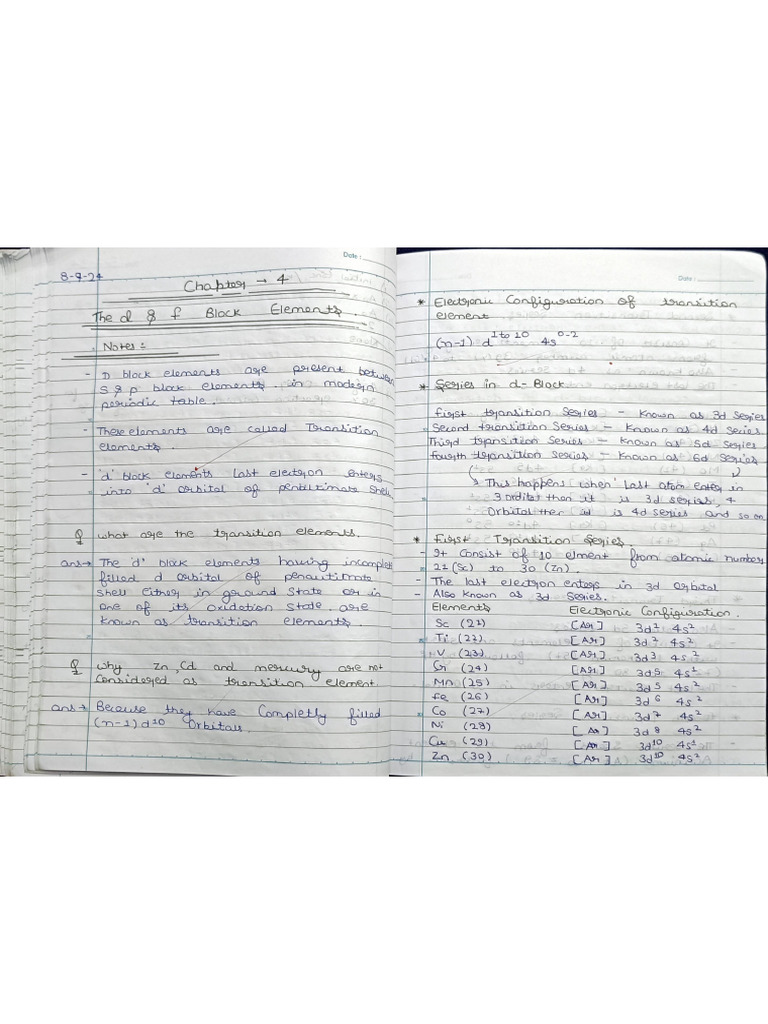 Date :
8-9-24
Chapter → 4
The d & f Block Elements.
Notes :
- D block elements are present between
S & p block elements. in modern
periodic table.
- These elements are called Transition
elements.
- 'd' block elements last electron enters
into 'd' orbital of penultimate shell.
Q what are the transition elements.
ans → The 'd' block elements having incomplet
filled d orbital of penautimate
shell either in ground state or in
one of its oxidation state are
known as transition elements.
Q why Zn, Cd and mercury are not
Considered as transition element
ans → Because they have Completly filled
(n-1) d10 Orbitals.
Date :
* Electronic Configuration of transition
element
(n-1) d 1 to 10 4s 0-2
* Series in d-Block
first transition Series - Known as 3d Series
Second transition Series - Known as 4d series
Third transition Series - Known as 5d Series
fourth transition series - Known as 6d Series
→ This happens when last atom enter in
3 orditat then it is 3d series. 4
Orbital then it is 4d series and so on
* First Transition Series.
- It Consist of 10 elment from atomic number
21 (Sc) to 30 (Zn).
- The last electron enters in 3d orbital
- Also Known as 3d Series.
Elements Electronic Configuration.
Sc (21) [Ar] 3d1 4s2
Ti (22) [Ar] 3d2 4s2
V (23) [Ar] 3d3 4s2
Cr (24) [Ar] 3d5 4s1
Mn (25) [Ar] 3d5 4s2
fe (26) [Ar] 3d6 4s2
Co (27) [Ar] 3d7 4s2
Ni (28) [Ar] 3d8 4s2
Cu (29) [Ar] 3d10 4s1
Zn (30) [Ar] 3d10 4s2